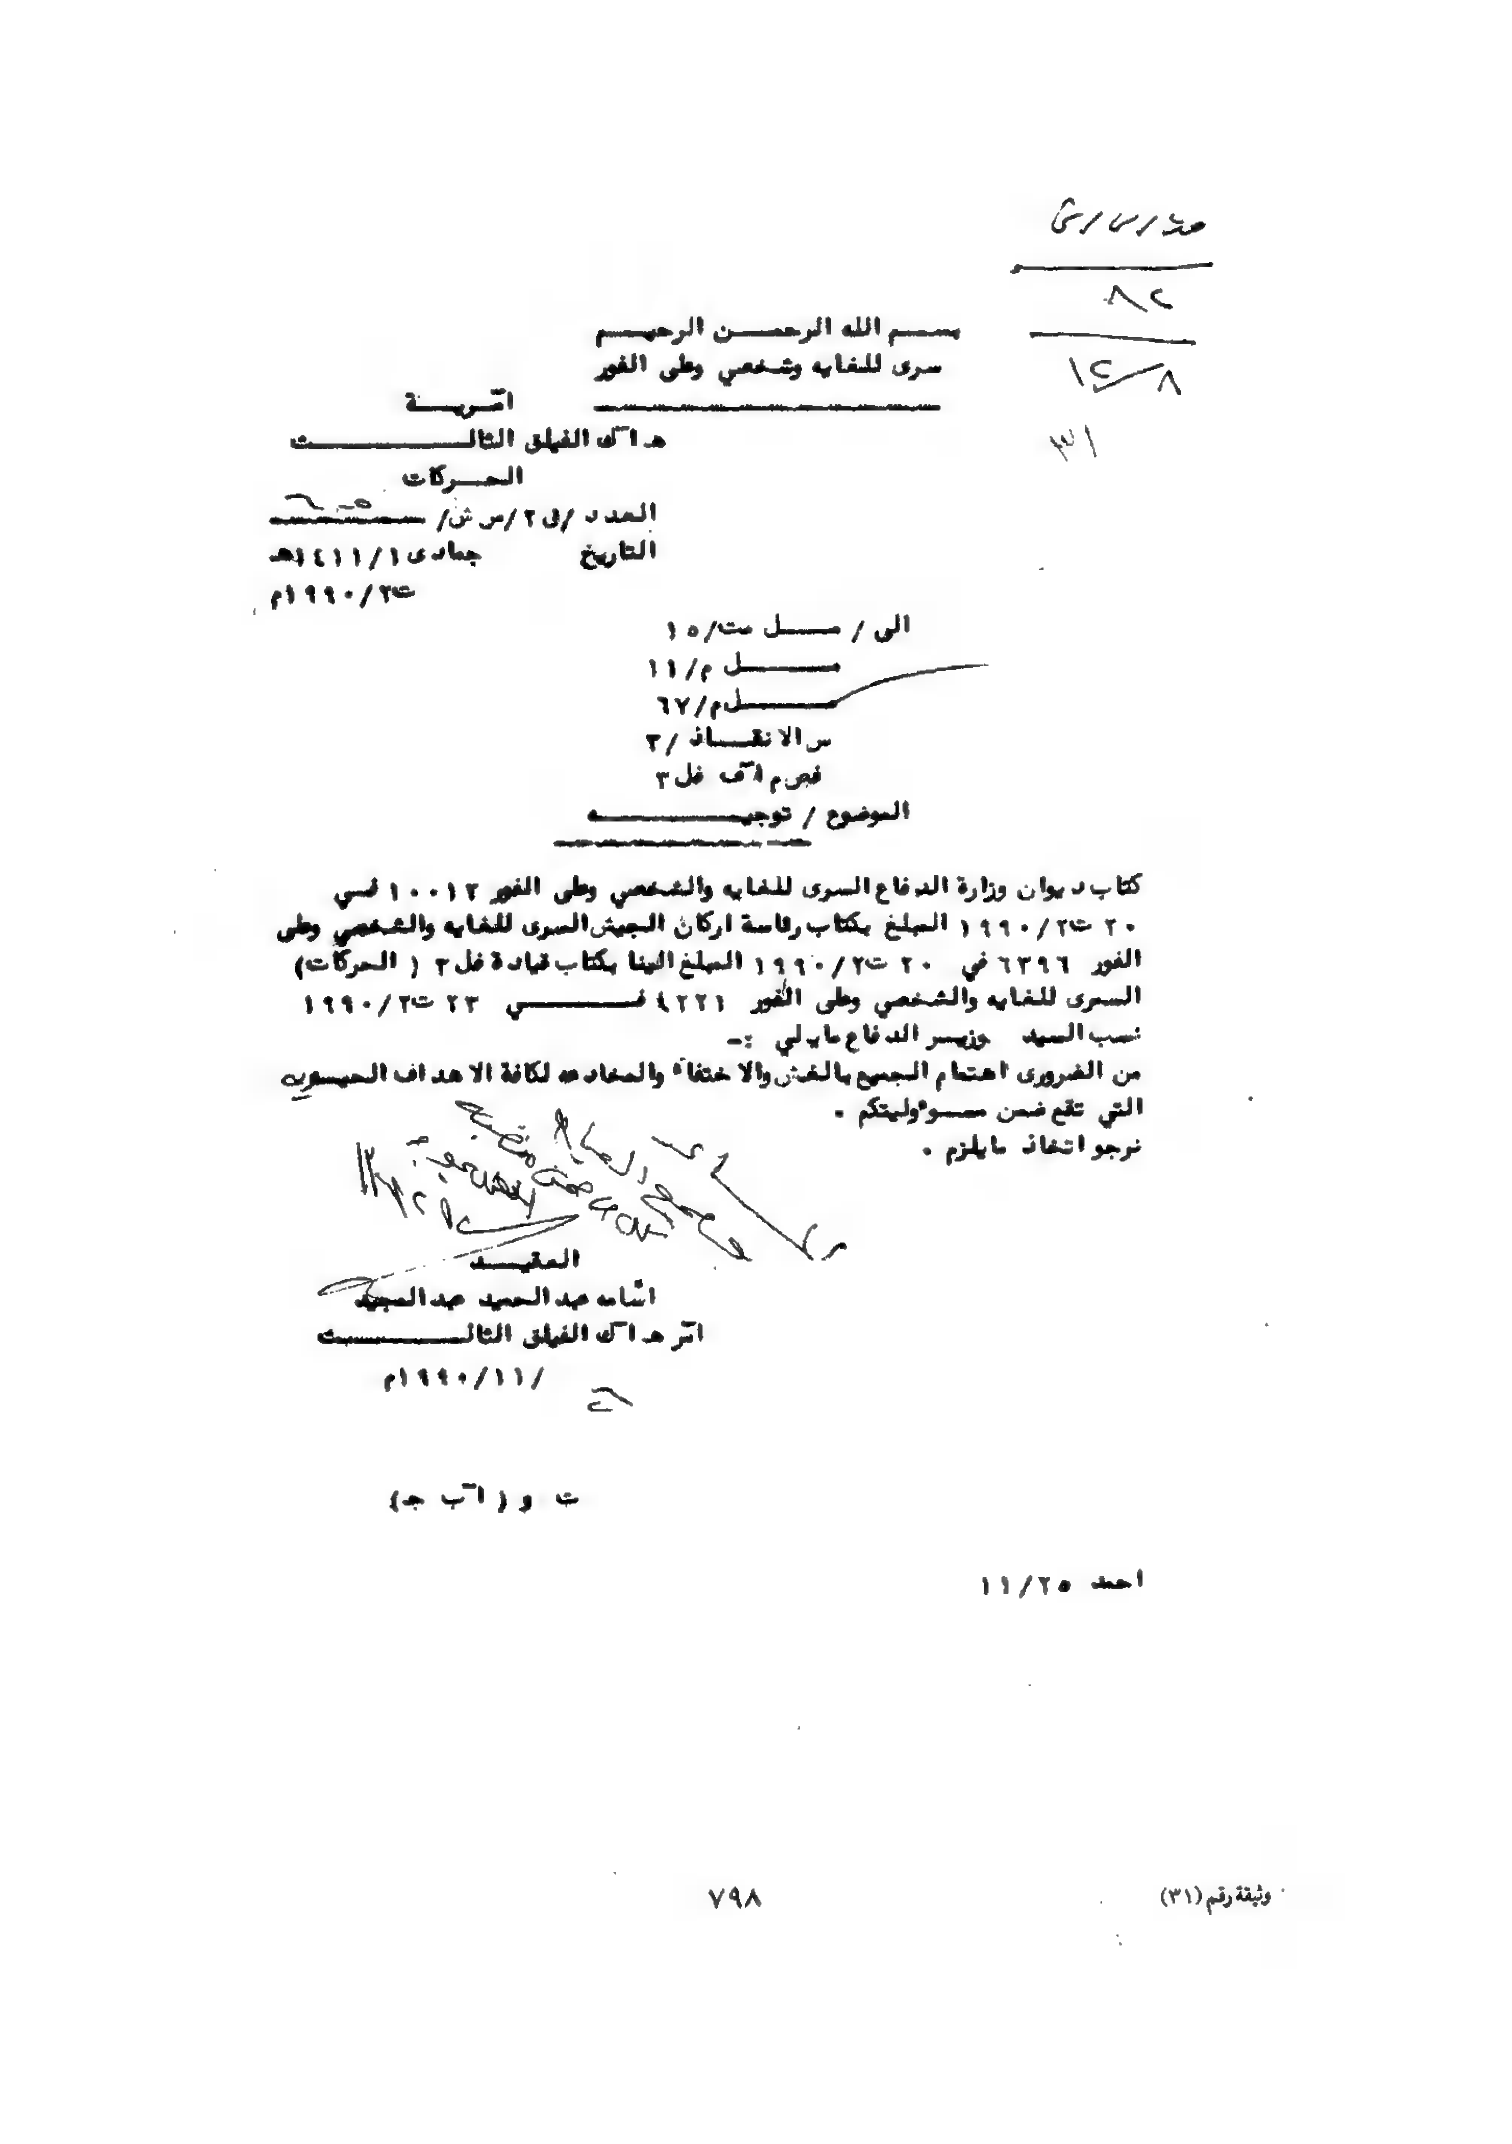 ٨٢
٨/١٢
٣١
بسم الله الرحمن الرحيم
سرى للغايه وشخصي وعلى الفور
هـ آ ك الفيلق الثالث
الحركات
العدد /ق ٢/س ش/
التاريخ جمادى ١٤١١/١هـ
ت٢/١٩٩٠م
الى / مل مت/١٥
ل م/١١
ل م/٦٧
س الانقاذ /٣
فل ٣
الموضوع / توجيه
كتاب ديوان وزارة الدفاع السرى للغايه والشخصي وعلى الفور ١٠٠١٢ في
٢٠ ت٢/١٩٩٠ المبلغ بكتاب رئاسة اركان الجيش السرى للغايه والشخصي وعلى
الفور ٦٣٩٦ في ٢٠ ت٢/١٩٩٠ المبلغ الينا بكتاب قيادة فل ٣ ( الحركات)
السرى للغايه والشخصي وعلى الفور ٤٢٢١ في ٢٣ ت٢/١٩٩٠
نسب السيد وزير الدفاع مايلي :-
من الضرورى اهتمام الجميع بالغش والاختفاء والمخادعه لكافة الاهداف الحيويه
التي تقع ضمن مسوءوليتكم .
نرجو اتخاذ مايلزم .
العقيد
اسامه عبد الحميد عبد المجيد
هـ آ ك الفيلق الثالث
/١٩٩٠/١١م
ت و ( آ ب جـ)
احمد ١١/٢٥
وثيقة رقم (٣١)
٧٩٨